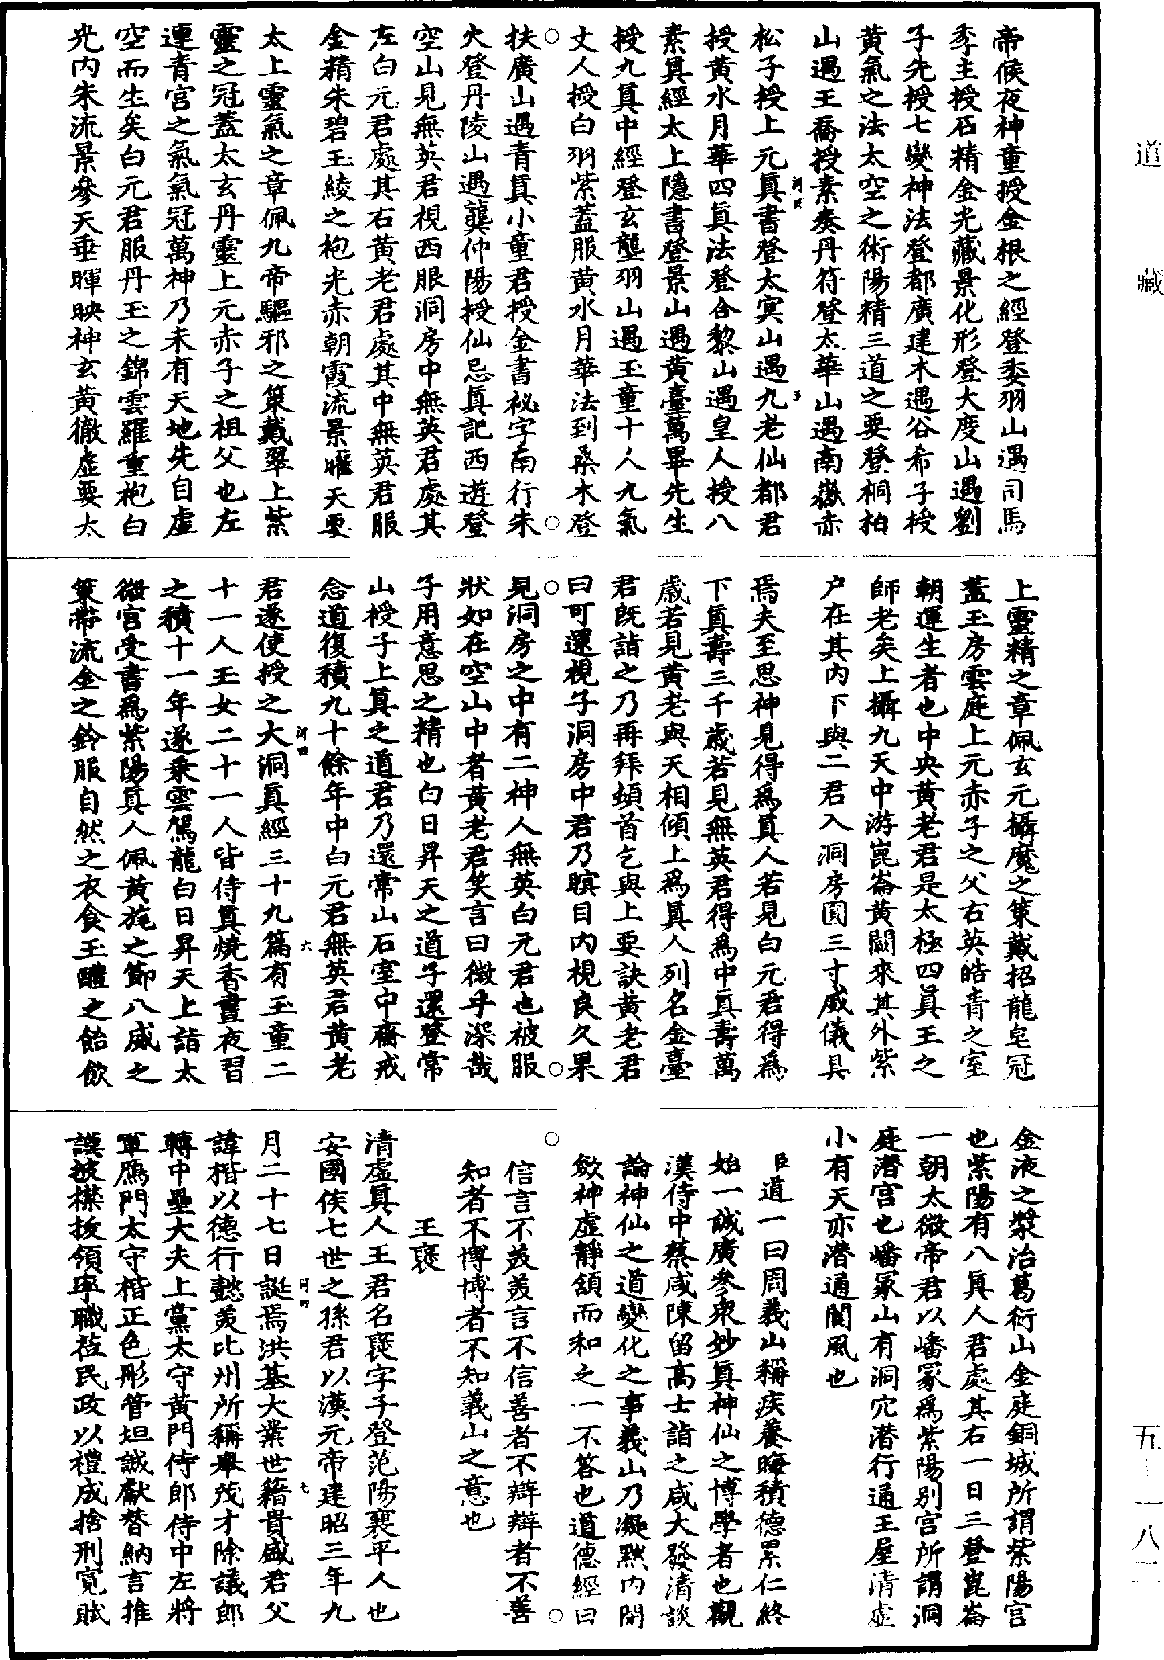 帝候夜神童授金根之經登委羽山遇司馬
季主授石精金光藏景化形登大度山遇劉
子先授七變神法登都廣建木遇谷希子授
黃氣之法太空之術陽精三道之要登桐柏
山遇王喬授素奏丹符登太華山遇南嶽赤
松子授上元眞書登太冥山遇九老仙都君
授黃水月華四眞法登合黎山遇皇人授八
素眞經太上隱書登景山遇黃臺萬畢先生
授九眞中經登玄壟羽山遇玉童十人九氣
丈人授白羽紫蓋服黃水月華法到桑木登
扶廣山遇青眞小童君授金書祕字南行朱
火登丹陵山遇龔仲陽授仙忌眞記西遊登
空山見無英君視西眼洞房中無英君處其
左白元君處其右黃老君處其中無英君服
金精朱碧玉綾之袍光赤朝霞流景曜天要
太上靈氣之章佩九帝驅邪之策戴翠上紫
靈之冠蓋太玄丹靈上元赤子之祖父也左
連青宮之氣氣冠萬神乃未有天地先自虛
空而生矣白元君服丹玉之錦雲羅重袍白
光內朱流景參天垂暉映神玄黃徹虛要太
上靈精之章佩玄元攝魔之策戴招龍皂冠
蓋玉房雲庭上元赤子之父右英皓青之室
朝運生者也中央黃老君是太極四眞王之
師老矣上攝九天中游崑崙黃闕來其外紫
戶在其內下與二君入洞房圓三寸威儀具
焉夫至思神見得爲眞人若見白元君得爲
下眞壽三千歲若見無英君得爲中眞壽萬
歲若見黃老與天相傾上爲眞人列名金臺
君旣詣之乃再拜頓首乞與上要訣黃老君
曰可還視子洞房中君乃瞑目內視良久果
見洞房之中有二神人無英白元君也被服
狀如在空山中者黃老君笑言曰微乎深哉
子用意思之精也白日昇天之道子還登常
山授子上眞之道君乃還常山石室中齋戒
念道復積九十餘年中白元君無英君黃老
君遂使授之大洞眞經三十九篇有玉童二
十一人玉女二十一人皆侍眞燒香晝夜習
之積十一年遂乘雲駕龍白日昇天上詣太
微宮受書爲紫陽眞人佩黃旄之節八威之
策帶流金之鈴服自然之衣食玉醴之飴飲
金液之漿治葛衍山金庭銅城所謂紫陽宮
也紫陽有八眞人君處其右一日三登崑崙
一朝太微帝君以嶓冢爲紫陽別宮所謂洞
庭潛宮也嶓冢山有洞穴潛行通王屋清虛
小有天亦潛通閬風也
臣道一曰周義山稱疾養晦積德累仁終
始一誠廣參衆妙眞神仙之博學者也觀
漢侍中蔡咸陳留高士詣之咸大發清談
論神仙之道變化之事義山乃凝默內閉
斂神虛靜頷而和之一不答也道德經曰
信言不美美言不信善者不辯辯者不善
知者不博博者不知義山之意也
王襃
清虛眞人王君名襃字子登范陽襄平人也
安國侯七世之孫君以漢元帝建昭三年九
月二十七日誕焉洪基大業世籍貴盛君父
諱楷以德行懿美比州所稱舉茂才除議郎
轉中壘大夫上黨太守黃門侍郎侍中左將
軍鴈門太守楷正色彤管坦誠獻替納言推
謨披襟接領宰職莅民政以禮成捨刑寬賦
道藏
五-一八二